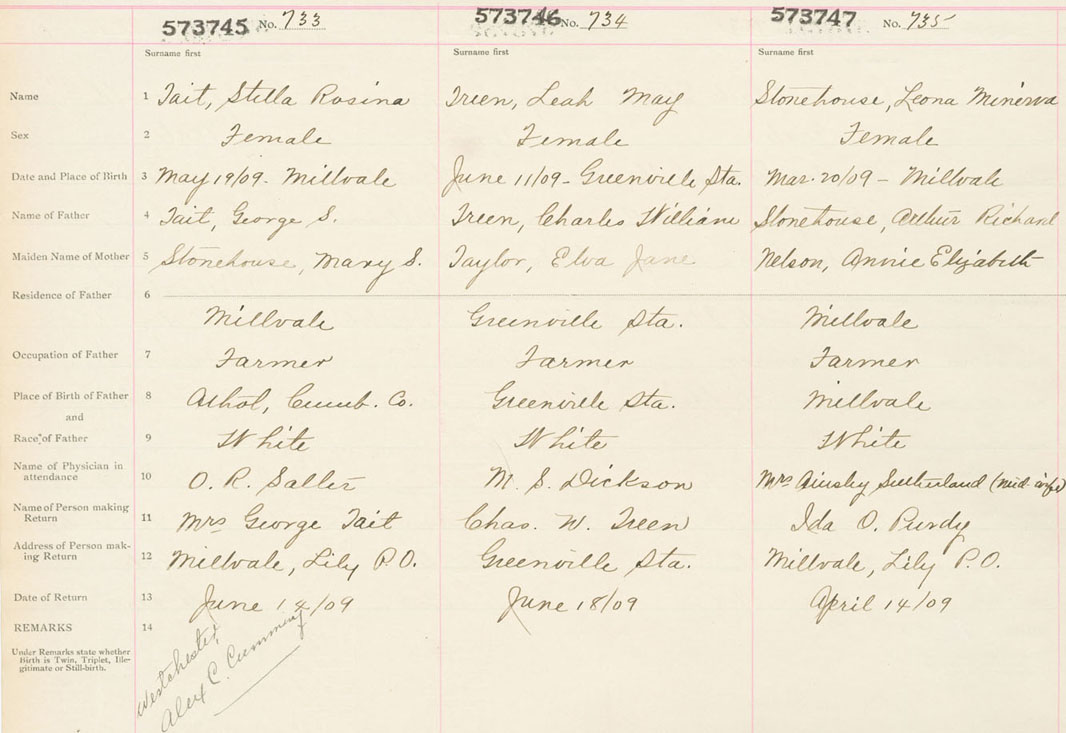 573745 No. 733 573746 No. 734 573747 No. 735
Surname first Surname first Surname first
Name 1 Tait, Stella Rosina Treen, Leah May Stonehouse, Leona Minerva
Sex 2 Female Female Female
Date and Place of Birth 3 May 19/09. Millvale June 11/09 - Greenville Sta. Mar. 20/09 - Millvale
Name of Father 4 Tait, George S. Treen, Charles William Stonehouse, Arthur Richard
Maiden Name of Mother 5 Stonehouse, Mary S. Taylor, Elva Jane Nelson, Annie Elizabeth
Residence of Father 6
Millvale Greenville Sta. Millvale
Occupation of Father 7 Farmer Farmer Farmer
Place of Birth of Father 8 Athol, Cumb. Co. Greenville Sta. Millvale
and
Race of Father 9 White White White
Name of Physician in
attendance 10 O. R. M. S. Dickson Mrs Ainsley Sutherland (mid wife)
Name of Person making
Return 11 Mrs George Tait Chas. W. Treen Ida O. Purdy
Address of Person mak-
ing Return 12 Millvale, Lily P.O. Greenville Sta. Millvale, Lily P.O.
Date of Return 13 June 14/09 June 18/09 April 14/09
REMARKS 14
Under Remarks state whether
Birth is Twin, Triplet, Ille-
gitimate or Still-birth.
Westchester
Alex C. Cumming